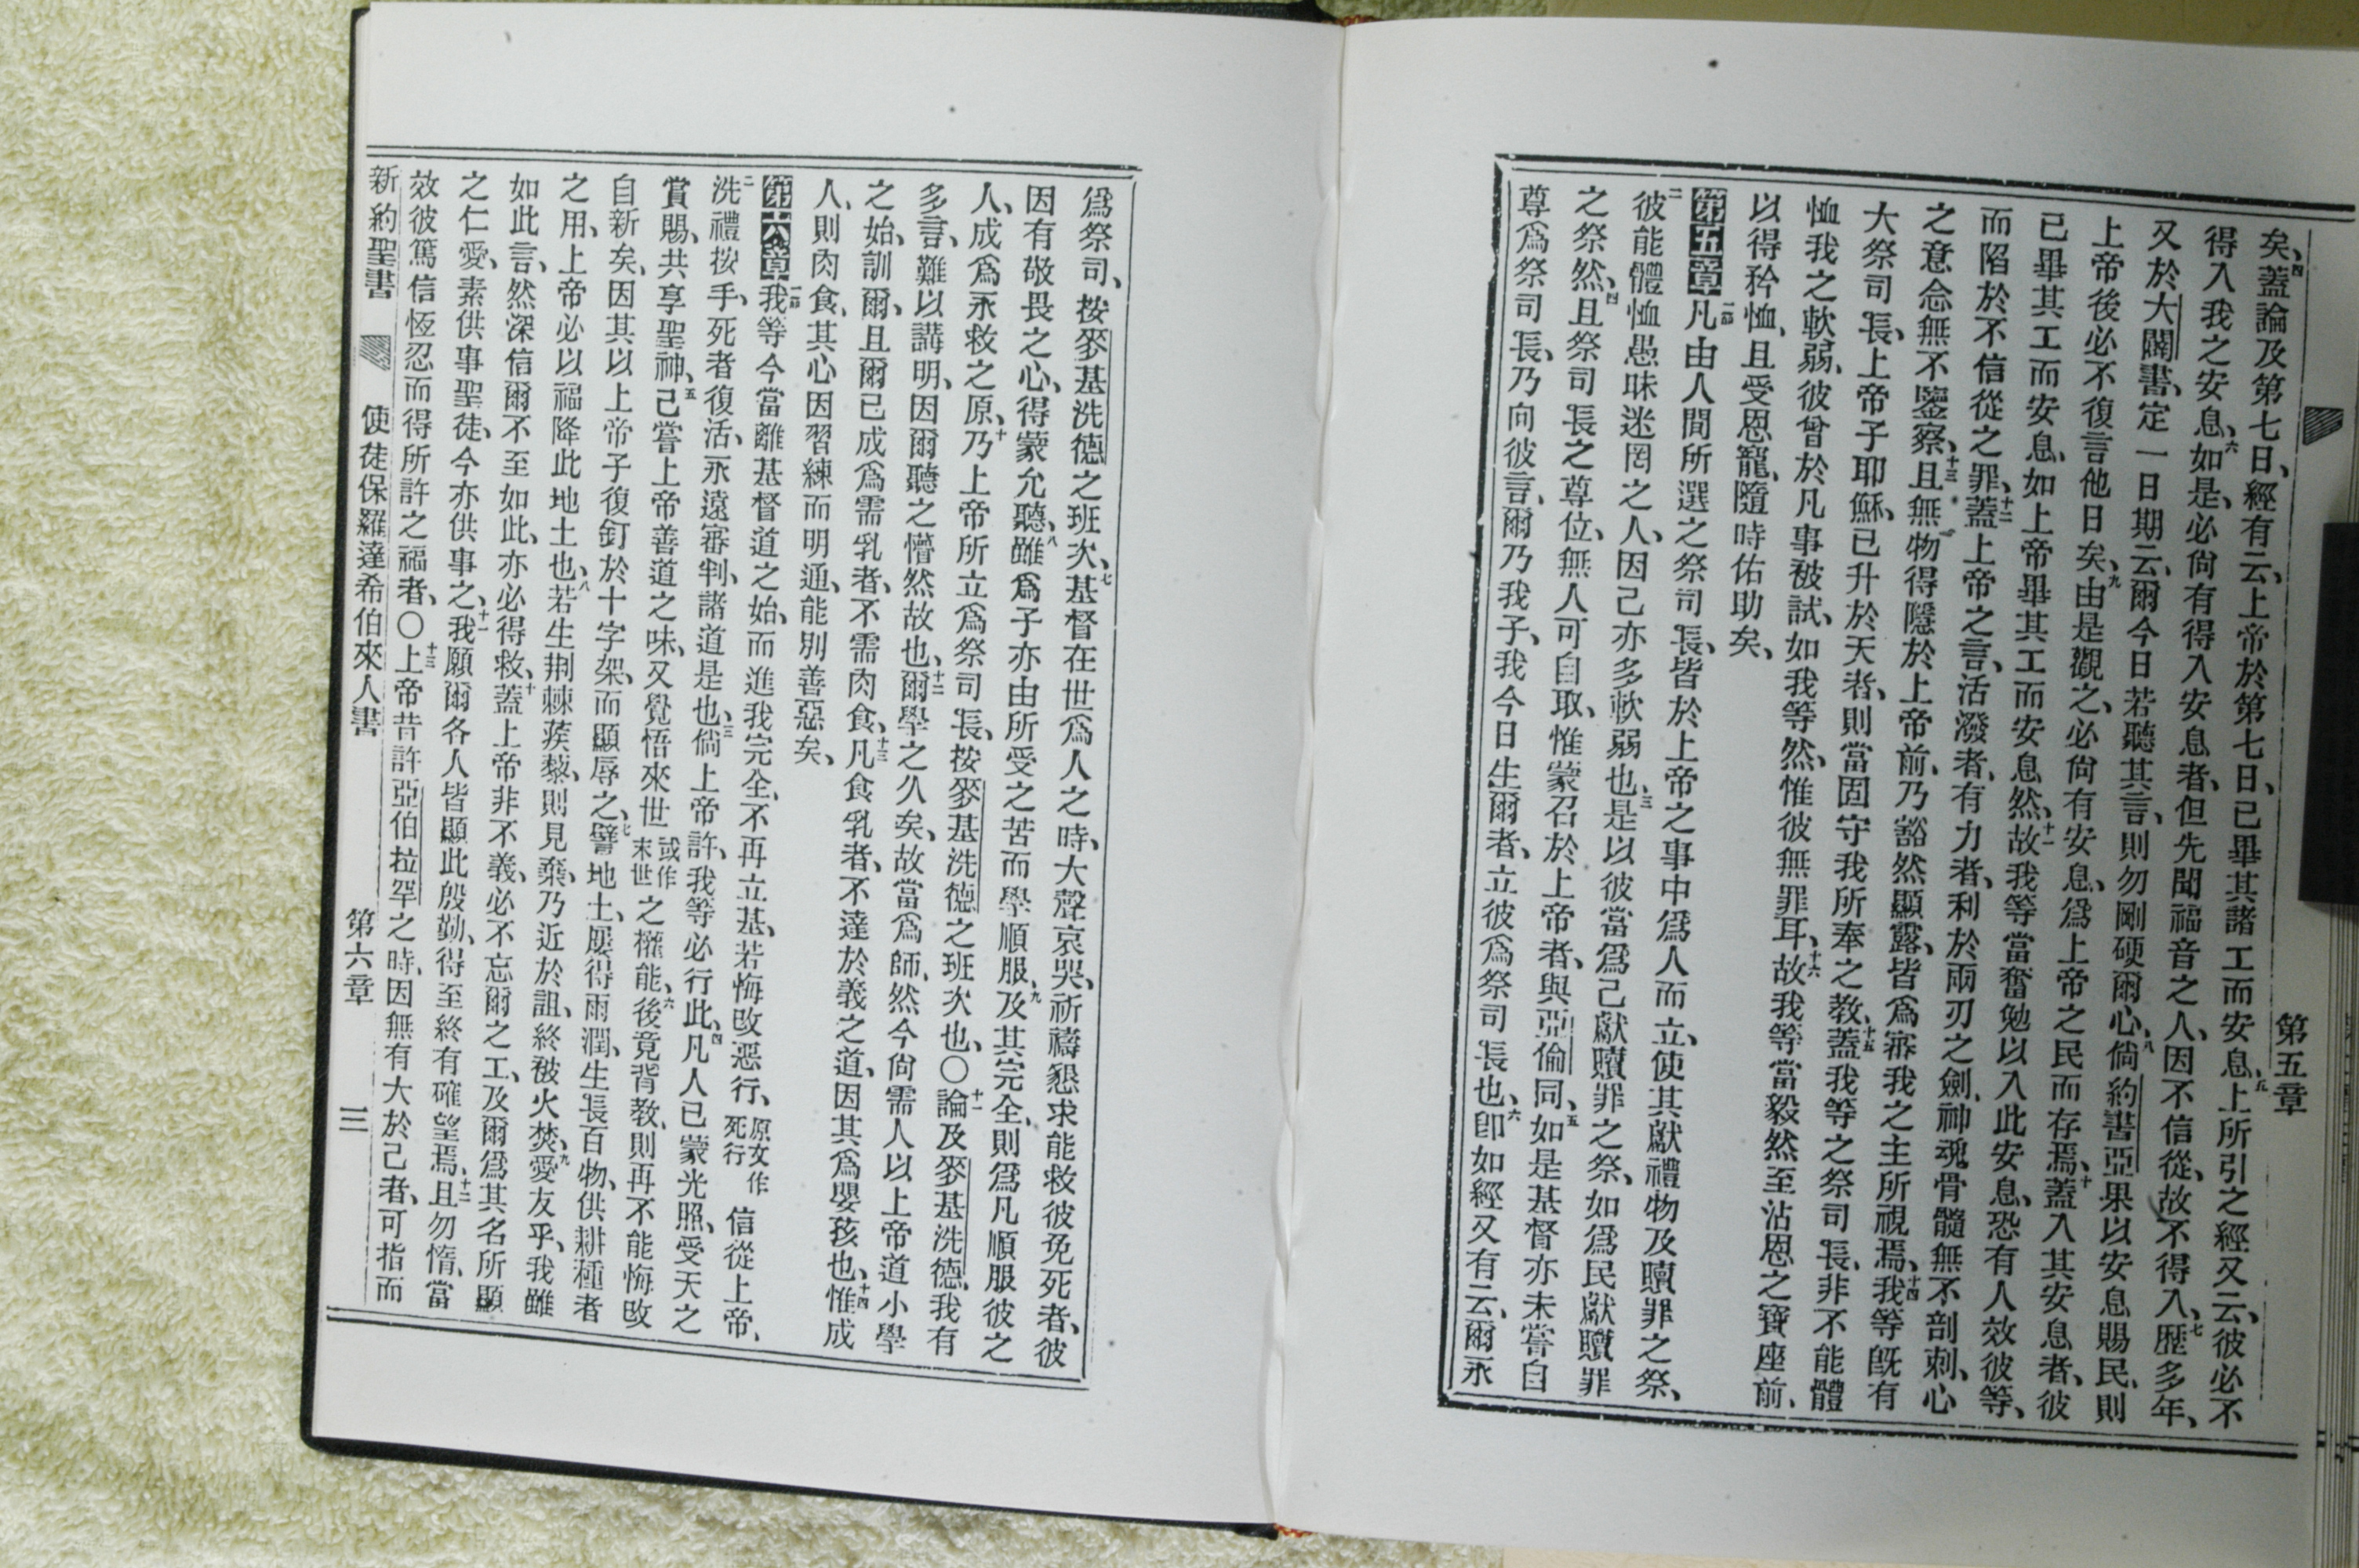 第五章
矣、四蓋論及第七日、經有云、上帝於第七日、已畢其諸工而安息、五上所引之經又云、彼必不
得入我之安息、六如是、必尙有得入安息者、但先聞福音之人、因不信從、故不得入、七歷多年、
又於大闢書、定一日期云、爾今日若聽其言、則勿剛硬爾心、八倘約書亞果以安息賜民、則
上帝後必不復言他日矣、九由是觀之、必尙有安息、爲上帝之民而存焉、十蓋入其安息者、彼
已畢其工而安息、如上帝畢其工而安息然、十一故我等當奮勉以入此安息、恐有人效彼等、
而陷於不信從之罪、十二蓋上帝之言、活潑者、有力者、利於兩刃之劍、神魂骨髓無不剖刺、心
之意念無不鑒察、十三且無物得隱於上帝前、乃豁然顯露、皆爲審我之主所視焉、十四我等旣有
大祭司長、上帝子耶穌、已升於天者、則當固守我所奉之教、十五蓋我等之祭司長、非不能體
恤我之軟弱、彼曾於凡事被試、如我等然、惟彼無罪耳、十六故我等當毅然至沾恩之寶座前、
以得矜恤、且受恩寵、隨時佑助矣、
第五章一節凡由人間所選之祭司長、皆於上帝之事中爲人而立、使其獻禮物及贖罪之祭、
二彼能體恤愚昧迷罔之人、因己亦多軟弱也、三是以彼當爲己獻贖罪之祭、如爲民獻贖罪
之祭然、四且祭司長之尊位、無人可自取、惟蒙召於上帝者、與亞倫同、五如是基督亦未嘗自
尊爲祭司長、乃向彼言、爾乃我子、我今日生爾者、立彼爲祭司長也、六卽如經又有云、爾永
爲祭司、按麥基洗德之班次、七基督在世爲人之時、大聲哀哭、祈禱懇求能救彼免死者、彼
因有敬畏之心、得蒙允聽、八雖爲子亦由所受之苦而學順服、九及其完全、則爲凡順服彼之
人、成爲永救之原、十乃上帝所立爲祭司長、按麥基洗德之班次也、〇十一論及麥基洗德、我有
多言、難以講明、因爾聽之懵然故也、十二爾學之久矣、故當爲師、然今尙需人以上帝道小學
之始、訓爾、且爾已成爲需乳者、不需肉食、十三凡食乳者、不達於義之道、因其爲嬰孩也、十四惟成
人、則肉食、其心因習練而明通、能別善惡矣、
第六章一節我等今當離基督道之始、而進我完全、不再立基、若悔改惡行、原文作死行信從上帝、
二洗禮按手、死者復活、永遠審判、諸道是也、三倘上帝許、我等必行此、四凡人已蒙光照、受天之
賞賜、共享聖神、五已嘗上帝善道之味、又覺悟來世或作末世之權能、六後竟背教、則再不能悔改
自新矣、因其以上帝子復釘於十字架、而顯辱之、七譬地土、屢得雨潤、生長百物、供耕種者
之用、上帝必以福降此地土也、八若生荆棘蒺藜、則見棄、乃近於詛、終被火焚、九愛友乎、我雖
如此言、然深信爾不至如此、亦必得救、十蓋上帝非不義、必不忘爾之工、及爾爲其名所顯
之仁愛、素供事聖徒、今亦供事之、十一我願爾各人皆顯此殷勤、得至終有確望焉、十二且勿惰、當
效彼篤信恆忍而得所許之福者、〇十三上帝昔許亞伯拉罕之時、因無有大於己者、可指而
新約聖書 使徒保羅達希伯來人書 第六章 三